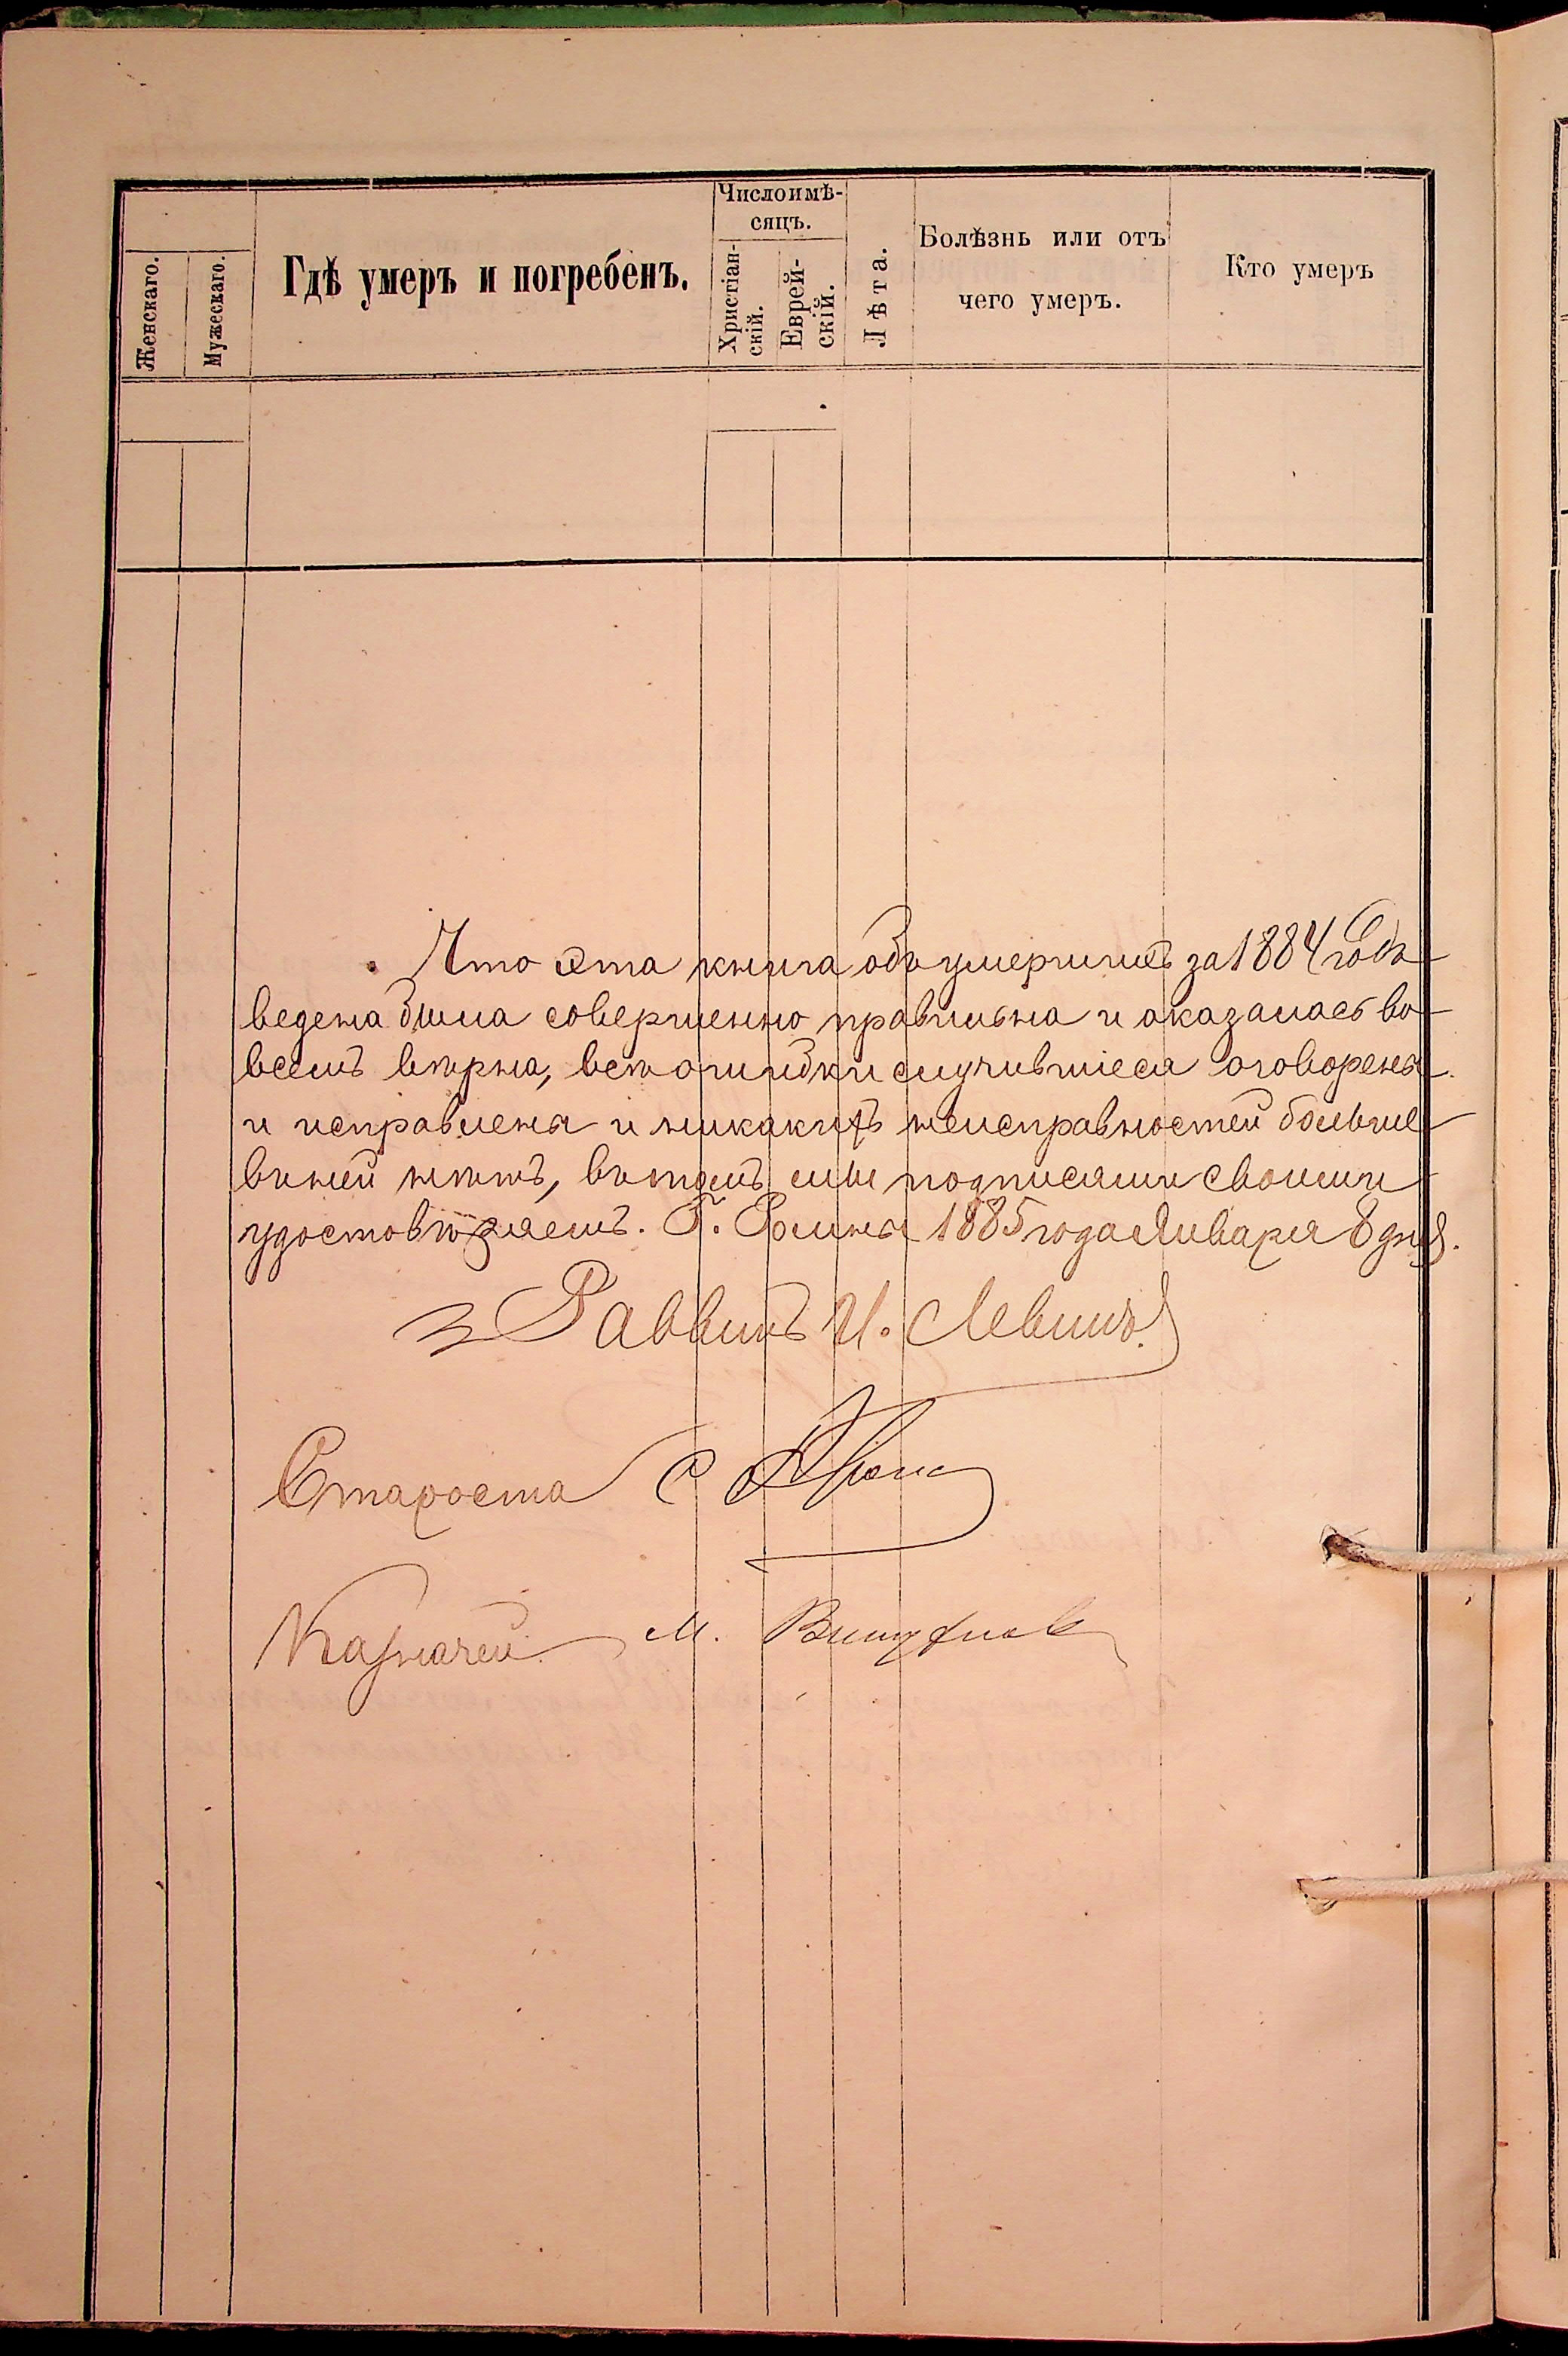 Женскаго.
Мужескаго.
Гдѣ умеръ и погребенъ.
Числоимѣ-
сяцъ.
Христіан-
скій.
Еврей-
скій.
Лѣта.
Болѣзнь или отъ
чего умеръ.
Кто умеръ
Что эта книга объ умершихъ за 1884 годъ
ведена была совершенно правильна и оказалась во
всемъ вѣрна, всѣ ошибки случившіеся оговорены
и исправлены и никакихъ неисправностей больше
въ ней нѣтъ, въ томъ мы подписями своими
удостовѣряемъ. Г. Ромны 1885 года Января 8 дня.
Раввинъ И. Левинъ.
Староста С
Казначей М.